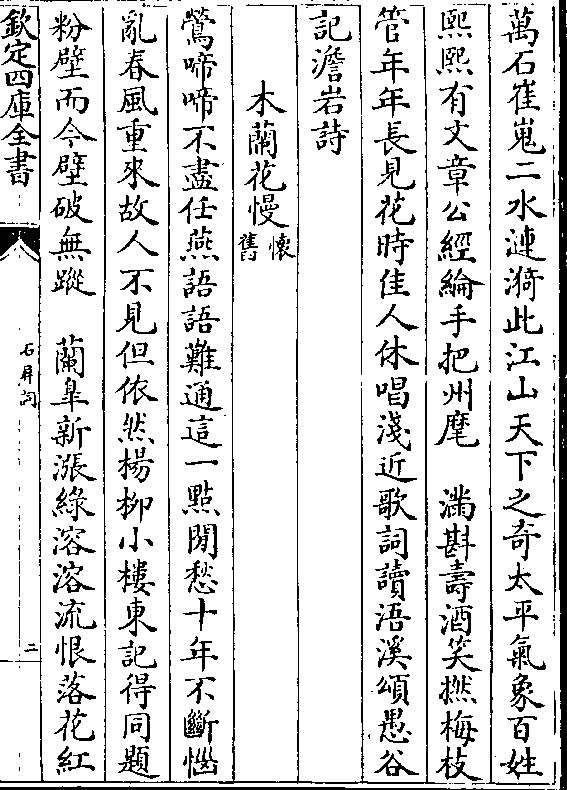 萬石崔嵬二水漣漪此江山天下之奇太平氣象百姓
熙熙有文章公經綸手把州麾　滿斟壽酒笑撚梅枝
管年年長見花時佳人休唱淺近歌詞讀浯溪頌愚谷
記澹岩詩
木蘭花慢懷舊
鶯啼啼不盡任燕語語難通這一點閒愁十年不斷惱
亂春風重來故人不見但依然楊柳小樓東記得同題
粉壁而今壁破無蹤　蘭臯新漲綠溶溶流恨落花紅
欽定四庫全書
石屏詞
二